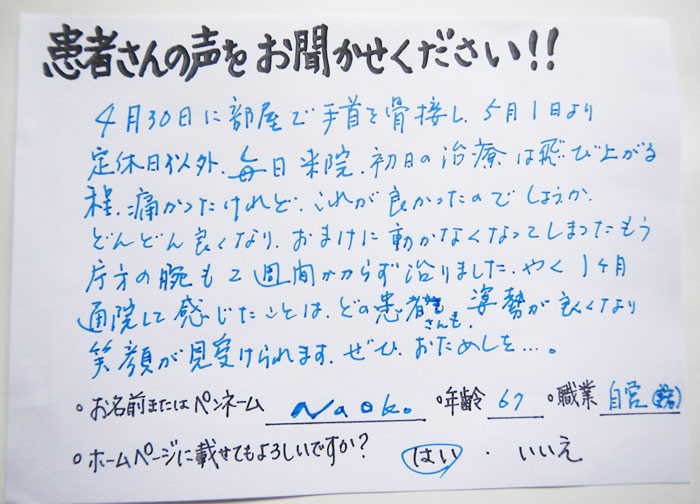 患者さんの声をお聞かせください!!
4月30日に部屋で手首を骨接し、5月1日より
定休日以外、毎日来院、初日の治療は飛び上がる
程、痛かったけれど、これが良かったのでしょうか、
どんどん良くなり、おまけに動かなくなってしまったもう
片方の腕も2週間かからず治りました。やく1ヶ月
通院して感じたことは、どの患者さんも、姿勢が良くなり
笑顔が見受けられます、ぜひ、おためしを…。
○お名前またはペンネーム Naoko ○年齢 67 ○職業 自営
○ホームページに載せてもよろしいですか? はい ・ いいえ